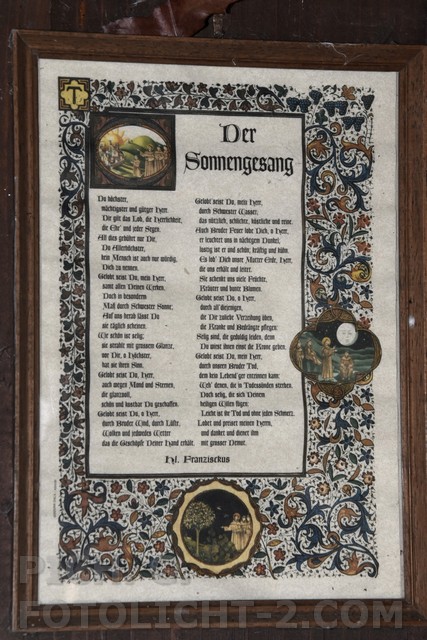 T
Der
Sonnengesang
Du höchster,
mächtigster und gütger Herr.
Dir gilt das Lob, die Herrlichkeit,
die Ehr' und jeder Segen.
All dies gebührt nur Dir,
Du Allerhöchster,
kein Mensch ist auch nur würdig,
Dich zu nennen.
Gelobt seist Du, mein Herr,
samt allen Deinen Werken.
Doch in besondrem
Maß durch Schwester Sonne.
Auf uns herab lässt Du
sie täglich scheinen.
Wie schön ist selbe,
sie strahlt mit grossem Glanze,
von Dir, o Höchster,
hat sie ihren Sinn.
Gelobt seist Du, Herr,
auch wegen Mond und Sternen,
die glanzvoll,
schön und kostbar Du geschaffen.
Gelobt seist Du, o Herr,
durch Bruder Wind, durch Lüfte,
Wolken und jedwedes Wetter
das die Geschöpfe Deiner Hand erhält.
Gelobt seist Du, mein Herr,
durch Schwester Wasser,
das nützlich, schlichter, köstliche und reine.
Auch Bruder Feuer lobe Dich, o Herr,
er leuchtet uns in nächtgem Dunkel,
lustig ist er und schön, kräftig und kühn.
Es lob' Dich unsre Mutter Erde, Herr,
die uns erhält und leitet.
Sie schenkt uns viele Früchte,
Kräuter und bunte Blumen.
Gelobt seist Du, o Herr,
durch all' diejenigen,
die Dir zuliebe Verzeihung üben,
die Kranke und Bedrängte pflegen.
Selig sind, die geduldig leiden, denn
Du wirst ihnen einst die Krone geben.
Gelobt seist Du, mein Herr,
durch unsren Bruder Tod,
dem kein Lebend'ger entrinnen kann.
Weh' denen, die in Todsünden sterben.
Doch selig, die sich Deinem
heiligen Willen fügen:
Leicht ist ihr Tod und ohne jeden Schmerz.
Lobet und preiset meinen Herrn,
und danket und dienet ihm
mit grosser Demut.
Hl. Franziskus
FOTOLICHT-2.COM